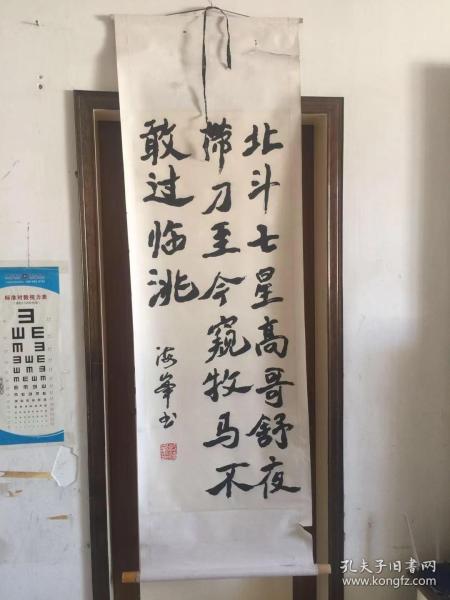 北斗七星高哥舒夜
带刀至今窥牧马不
敢过临洮
海峰书
标准对数视力表
孔夫子旧书网
www.kongfz.com